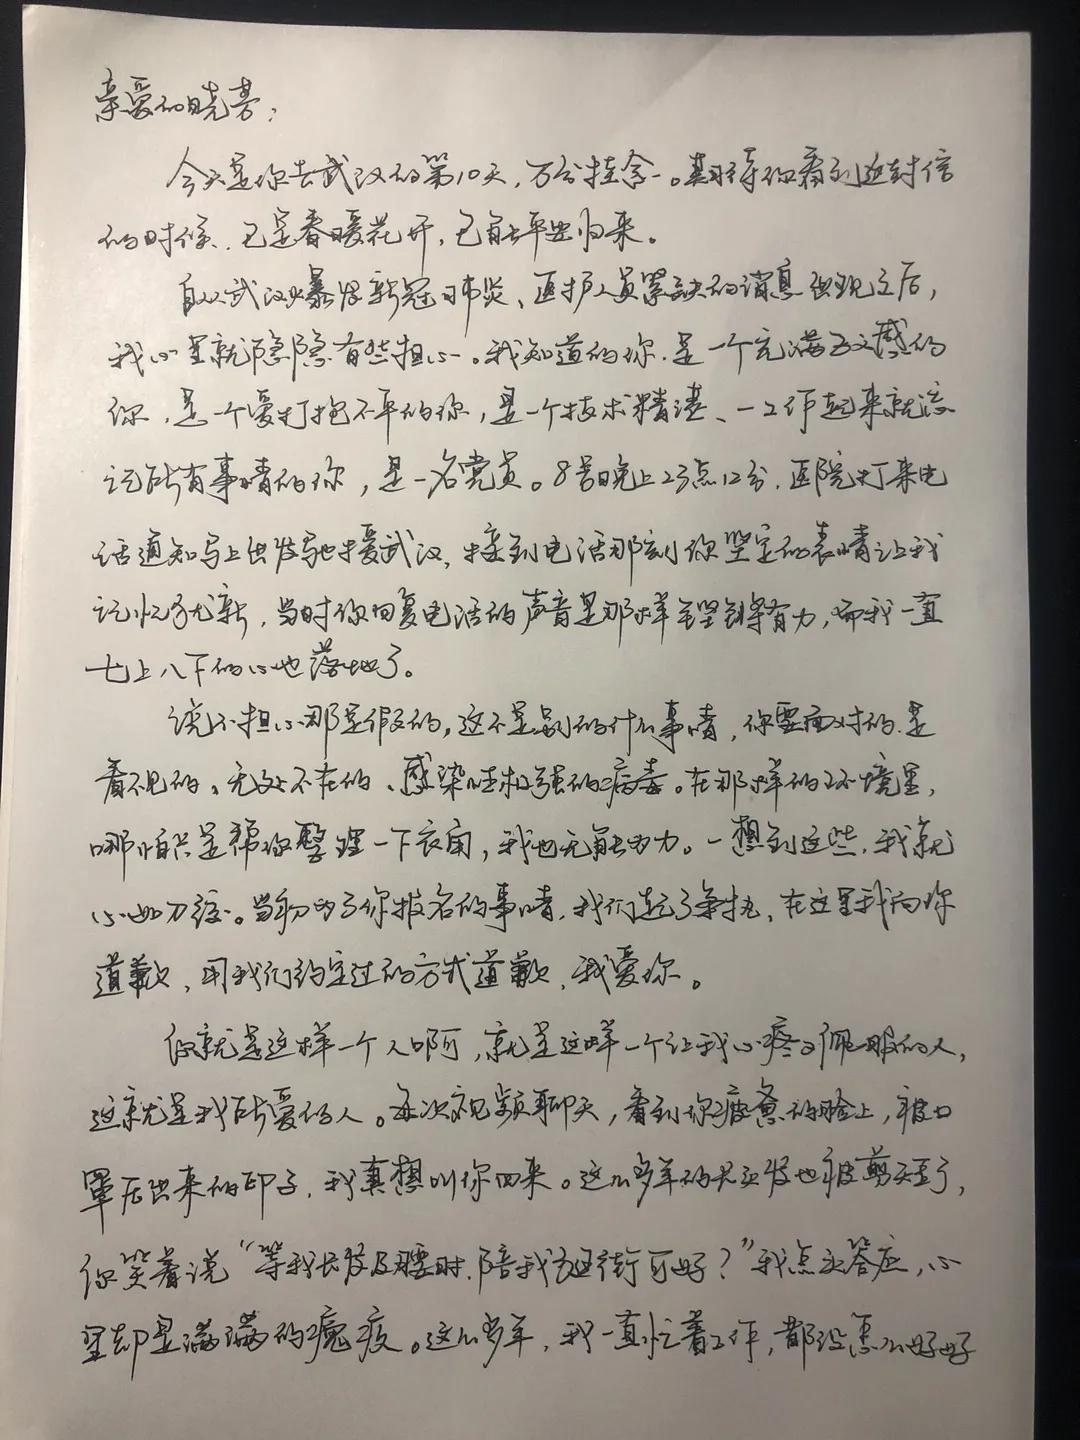 亲爱的晓芳：
今天是你去武汉的第10天，万分挂念。期待你看到这封信
的时候，已是春暖花开，已能平安归来。
自从武汉爆发新冠肺炎、医护人员紧缺的消息出现之后，
我心里就隐隐有些担心。我知道的你，是一个充满正义感的
你，是一个爱打抱不平的你，是一个技术精湛、一工作起来就忘
记所有事情的你，是一名党员。8号晚上23点12分，医院打来电
话通知马上出发驰援武汉，接到电话那刻你坚定的表情让我
记忆犹新，当时你回复电话的声音是那样铿锵有力，而我一直
七上八下的心也落地了。
说不担心那是假的，这不是别的什么事情，你要面对的是
看不见的、无处不在的、感染性极强的病毒。在那样的环境里，
哪怕只是帮你整理一下衣角，我也无能为力。一想到这些，我就
心如刀绞。当初为了你报名的事情，我们起了争执，在这里我向你
道歉，用我们约定过的方式道歉，我爱你。
你就是这样一个人啊，就是这样一个让我心疼又佩服的人，
这就是我所爱的人。每次视频聊天，看到你疲惫的脸上，被口
罩压出来的印子，我真想叫你回来。这么多年的长头发也被剪短了，
你笑着说“等我长发及腰时，陪我逛街可好？”我点头答应，心
里却是满满的愧疚。这么多年，我一直忙着工作，都没怎么好好